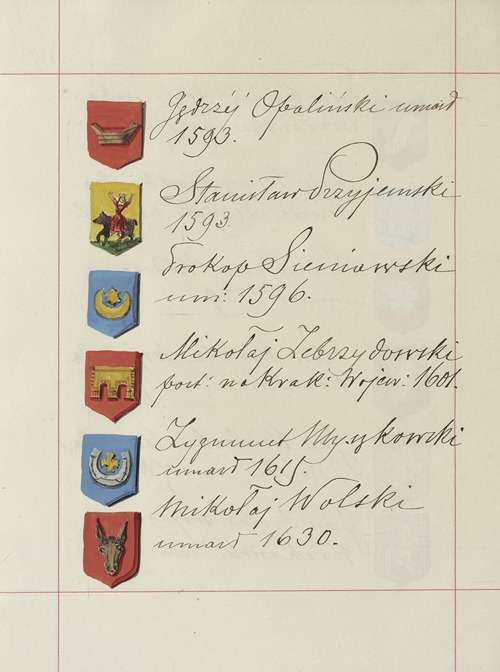 Jędrzéj Opaliński umarł
1593.
Stanisław Przyjemski
1593.
Prokop Sieniawski
um: 1596.
Mikołaj Zebrzydowski
post: na Krak: Wojew: 1601.
Zygmunt Myszkowski
umarł 1615.
Mikołaj Wolski
umarł 1630.